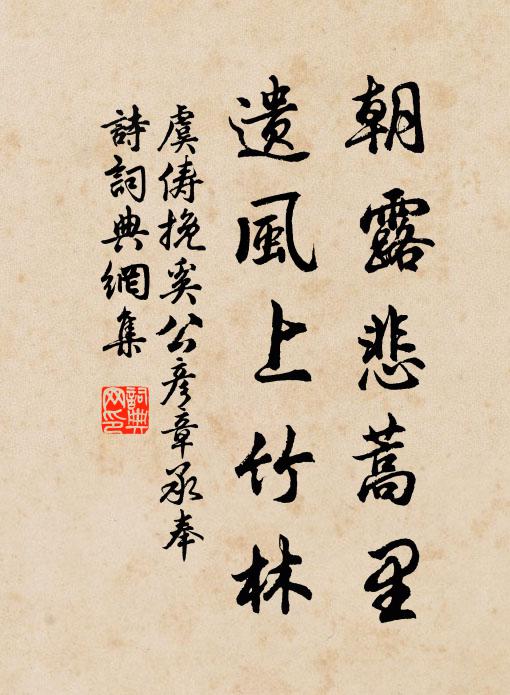 朝露悲蒿里
遗風上竹林
虞儔挽奚公彦章承奉
詩詞典網集
詞典网印